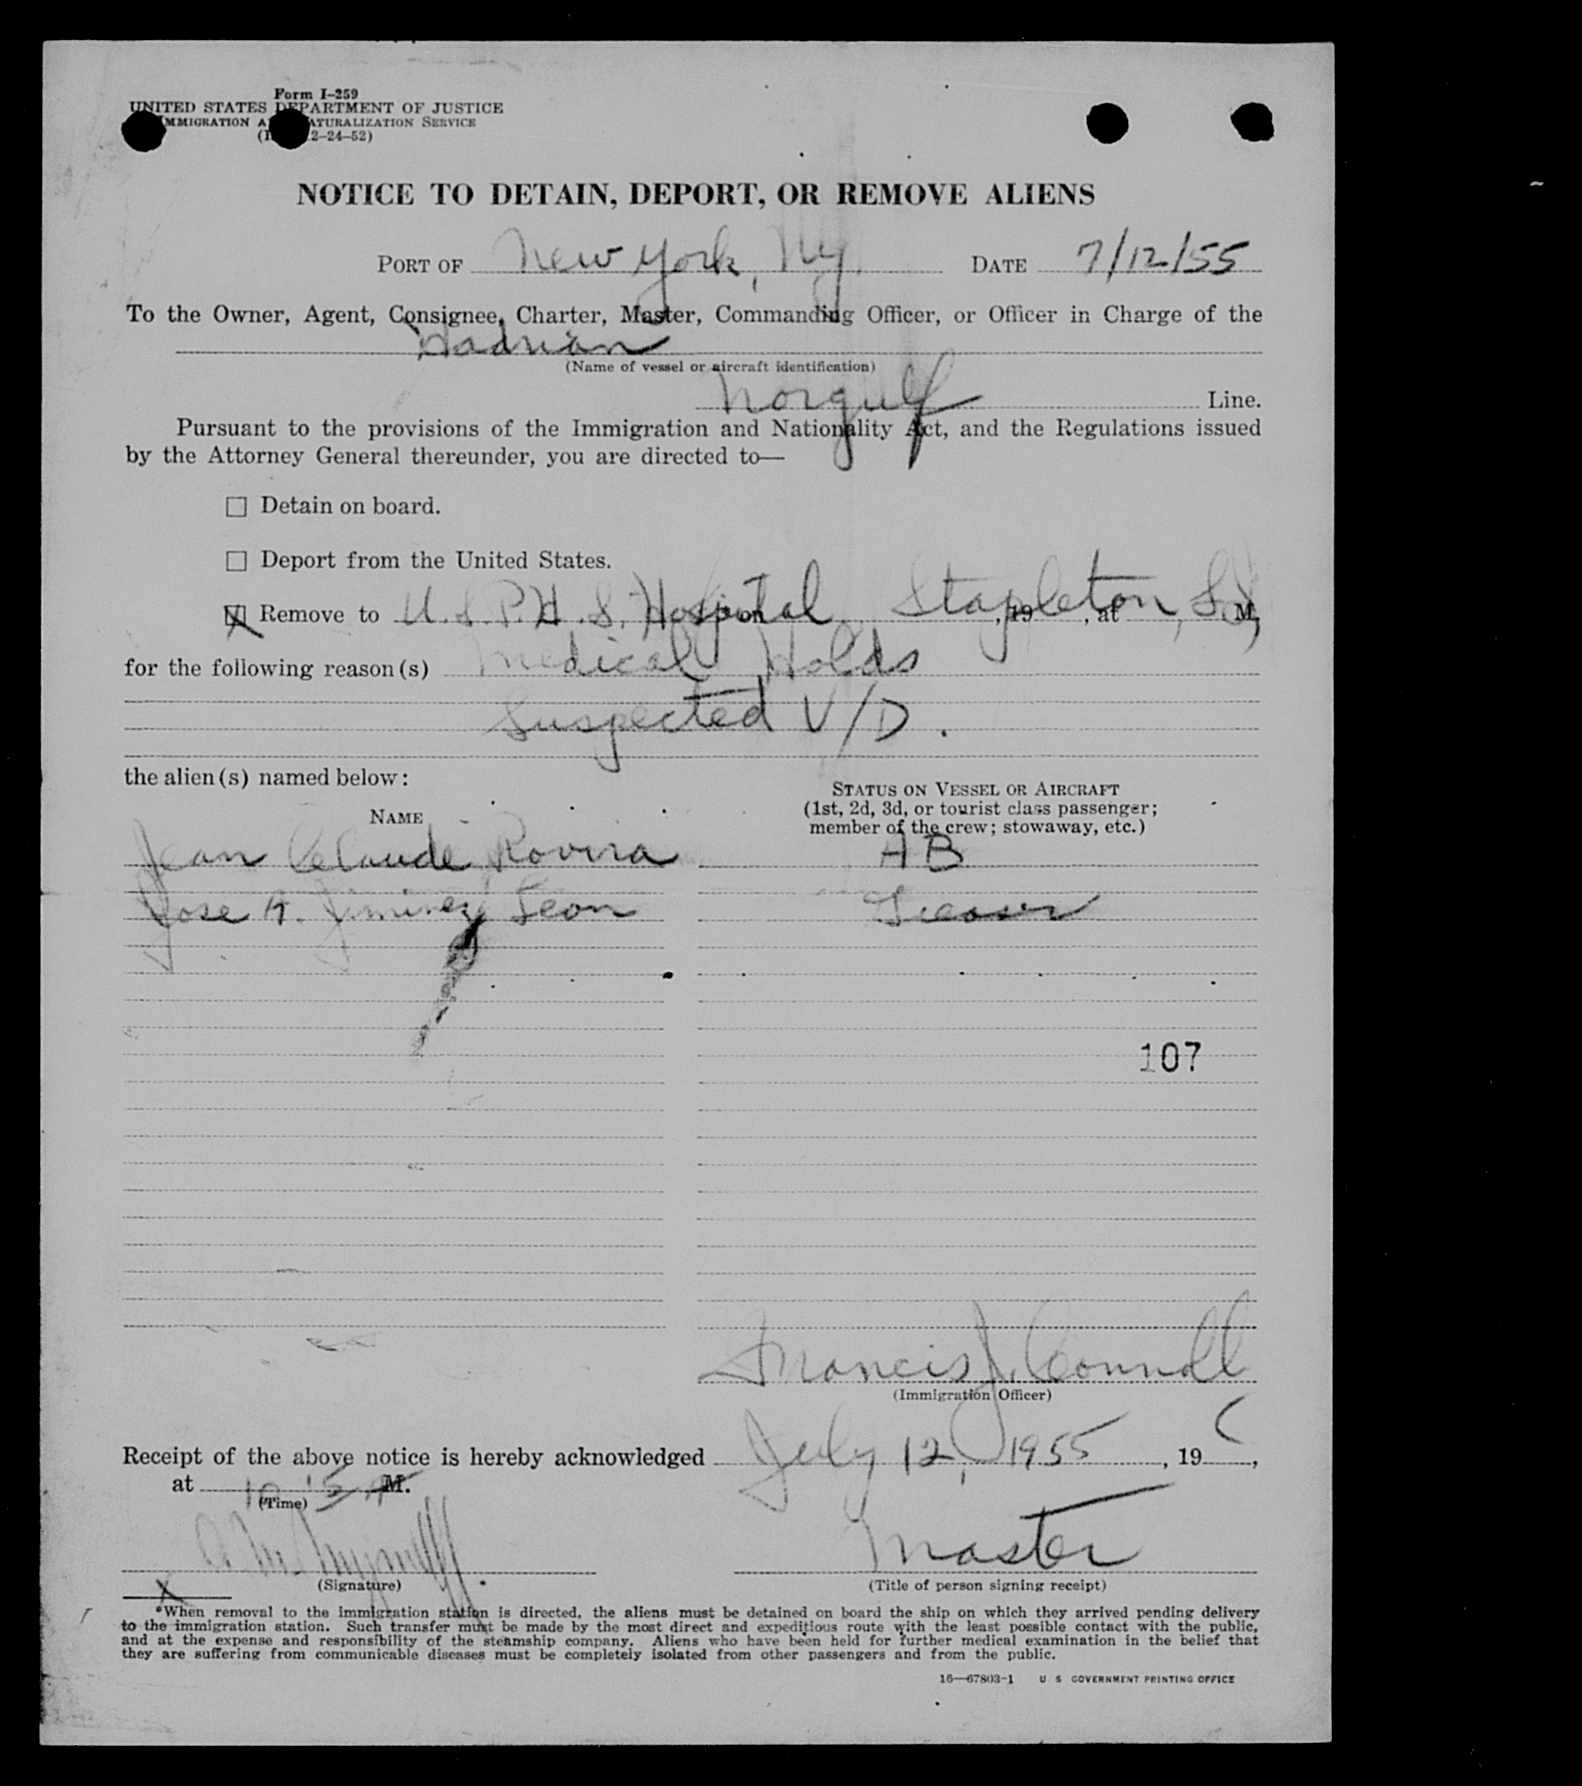 Form I-259
UNITED STATES DEPARTMENT OF JUSTICE
IMMIGRATION A NATURALIZATION SERVICE
2-24-52)
NOTICE TO DETAIN, DEPORT, OR REMOVE ALIENS
PORT OF New York, NY. DATE 7/12/55
To the Owner, Agent, Consignee, Charter, Master, Commanding Officer, or Officer in Charge of the
Hadrian
(Name of vessel or aircraft identification)
Norgulf Line.
Pursuant to the provisions of the Immigration and Nationality Act, and the Regulations issued
by the Attorney General thereunder, you are directed to—
☐ Detain on board.
☐ Deport from the United States.
☒ Remove to U.S.P.H.S. Hospital on Stapleton, S.I., 19, at M,
for the following reason(s) Medical Holds
Suspected V/D.
the alien(s) named below:
STATUS ON VESSEL OR AIRCRAFT
(1st, 2d, 3d, or tourist class passenger;
member of the crew; stowaway, etc.)
NAME
Jean Claude Rovira AB
Jose A. Jiminez Leon
107
Francis J. Connell
(Immigration Officer)
Receipt of the above notice is hereby acknowledged July 12, 1955, 19,
at 10 15 A M.
(Time)
Master
(Signature) (Title of person signing receipt)
X
*When removal to the immigration station is directed, the aliens must be detained on board the ship on which they arrived pending delivery
to the immigration station. Such transfer must be made by the most direct and expeditious route with the least possible contact with the public,
and at the expense and responsibility of the steamship company. Aliens who have been held for further medical examination in the belief that
they are suffering from communicable diseases must be completely isolated from other passengers and from the public.
16—67803-1 U S GOVERNMENT PRINTING OFFICE